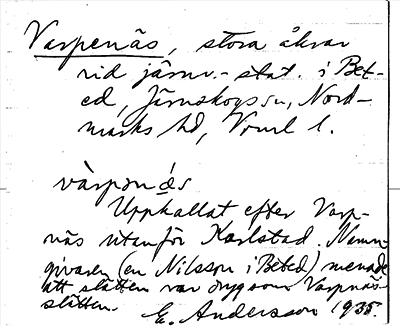 Varpenäs, stora åkrar
vid järnv.-stat. i Bet-
ed, Järnskogs sn, Nord-
marks hd, Vrml l.
vàrpənä́s
Uppkallat efter Varp-
näs utanför Karlstad. Namn-
givaren (en Nilsson i Beted) menade
att slätten var dryg som Varpnäs-
slätten.
E. Andersson 1935